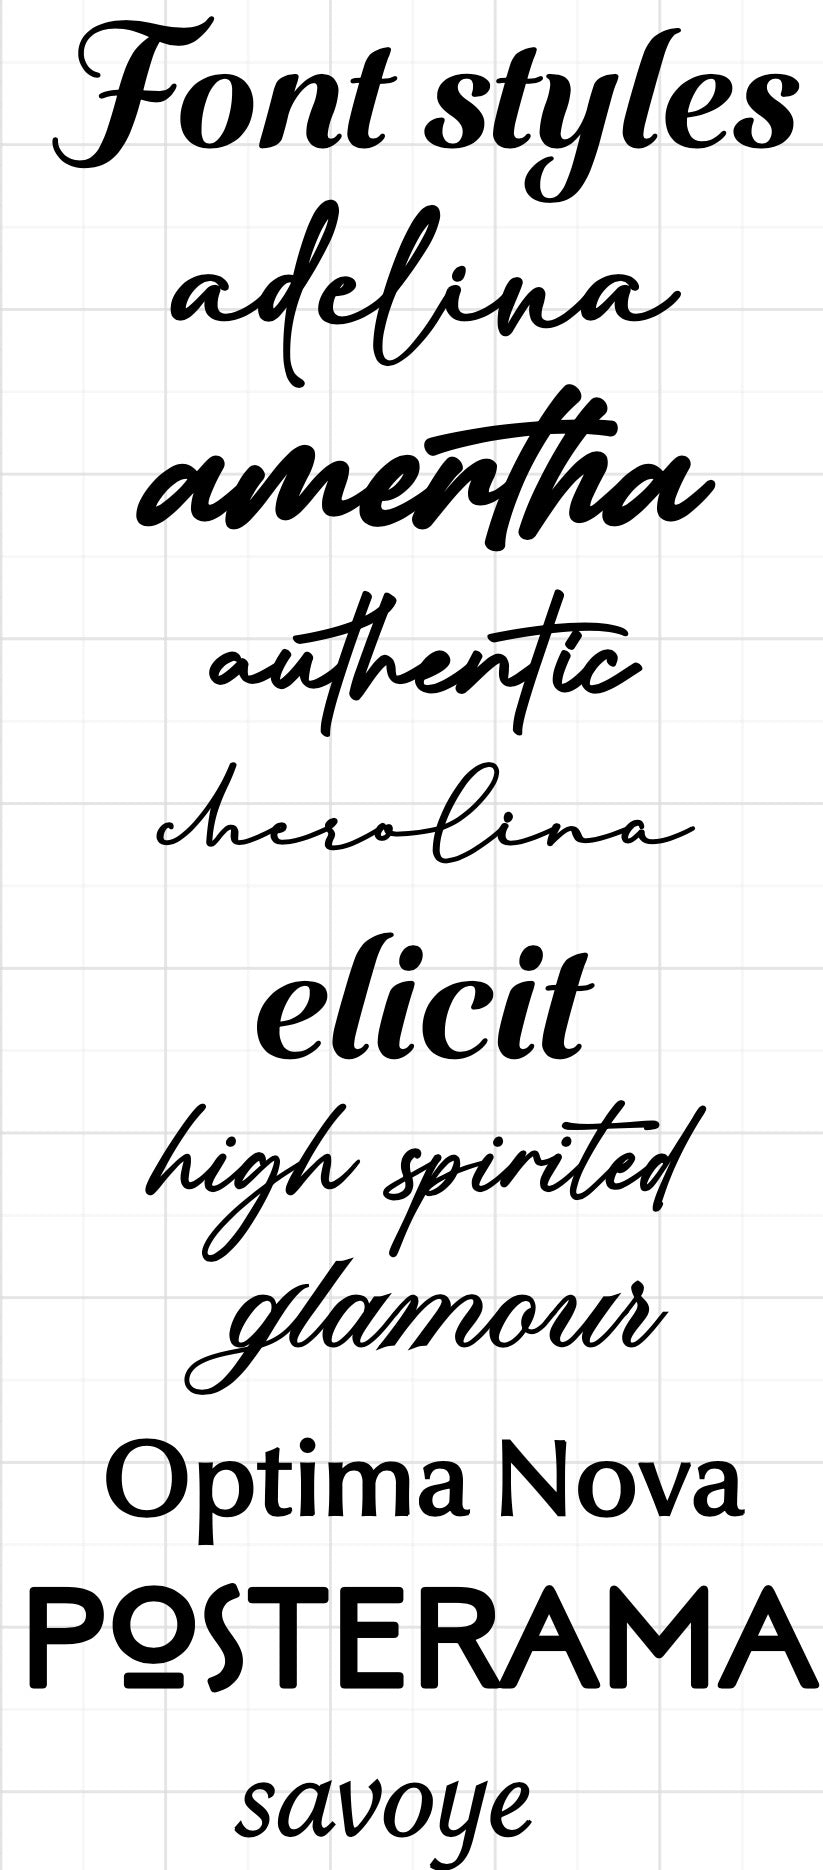 Font styles
adelina
amertha
authentic
cherolina
elicit
high spirited
glamour
Optima Nova
POSTERAMA
savoye